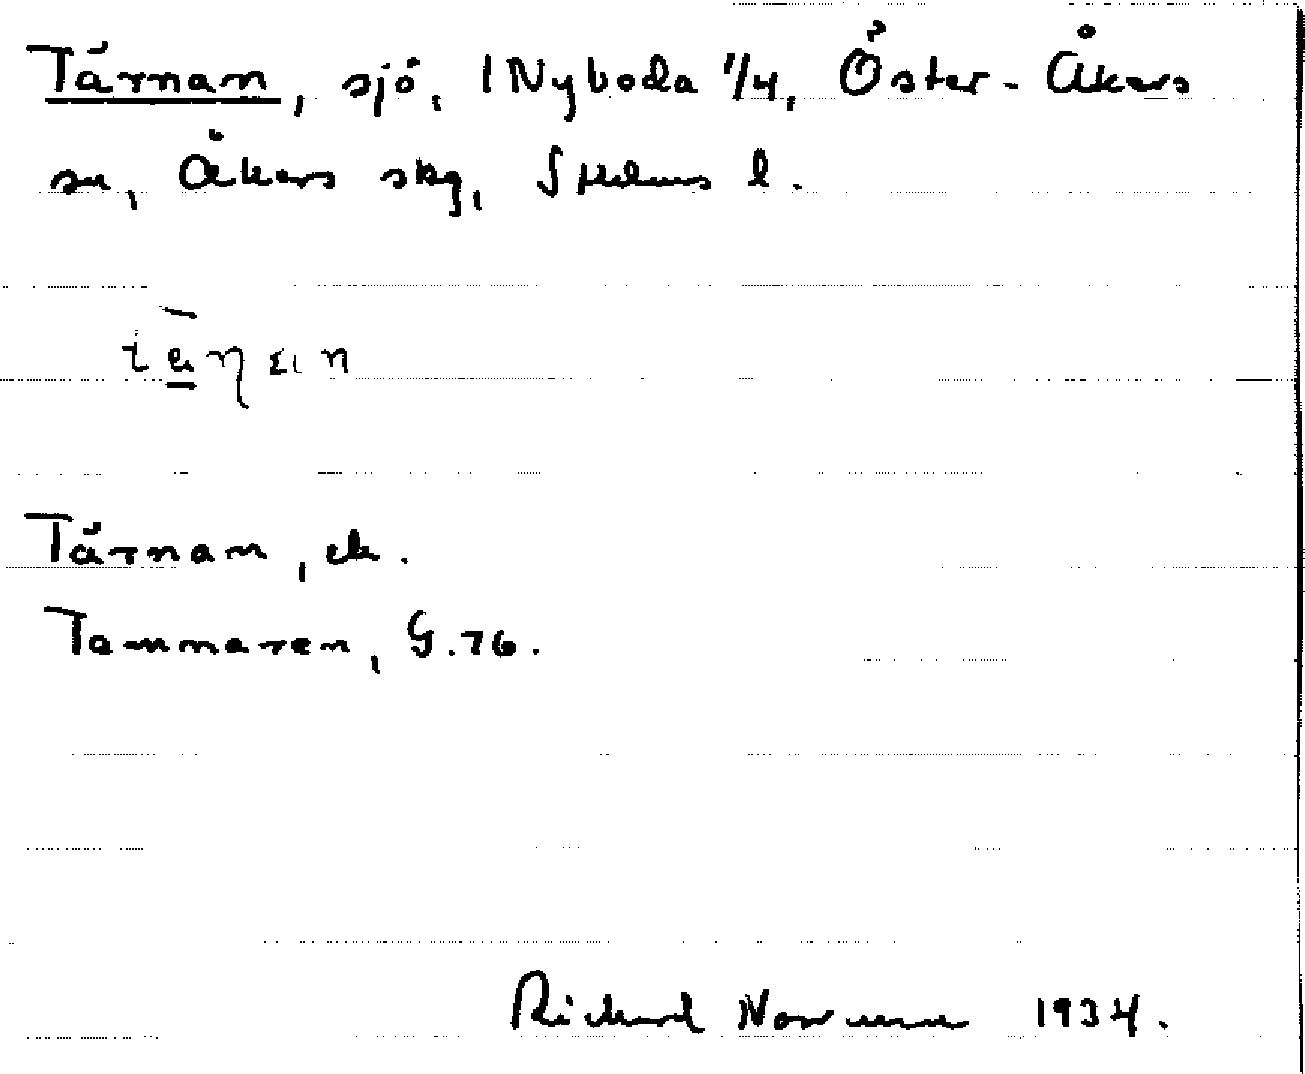 Tärnan, sjö, 1 Nyboda 1/4, Öster-Åkers
sn, Åkers skg, Sthlms l.
Tärnan, ek.
Tammaren, G.76.
Richard Norrman 1934.